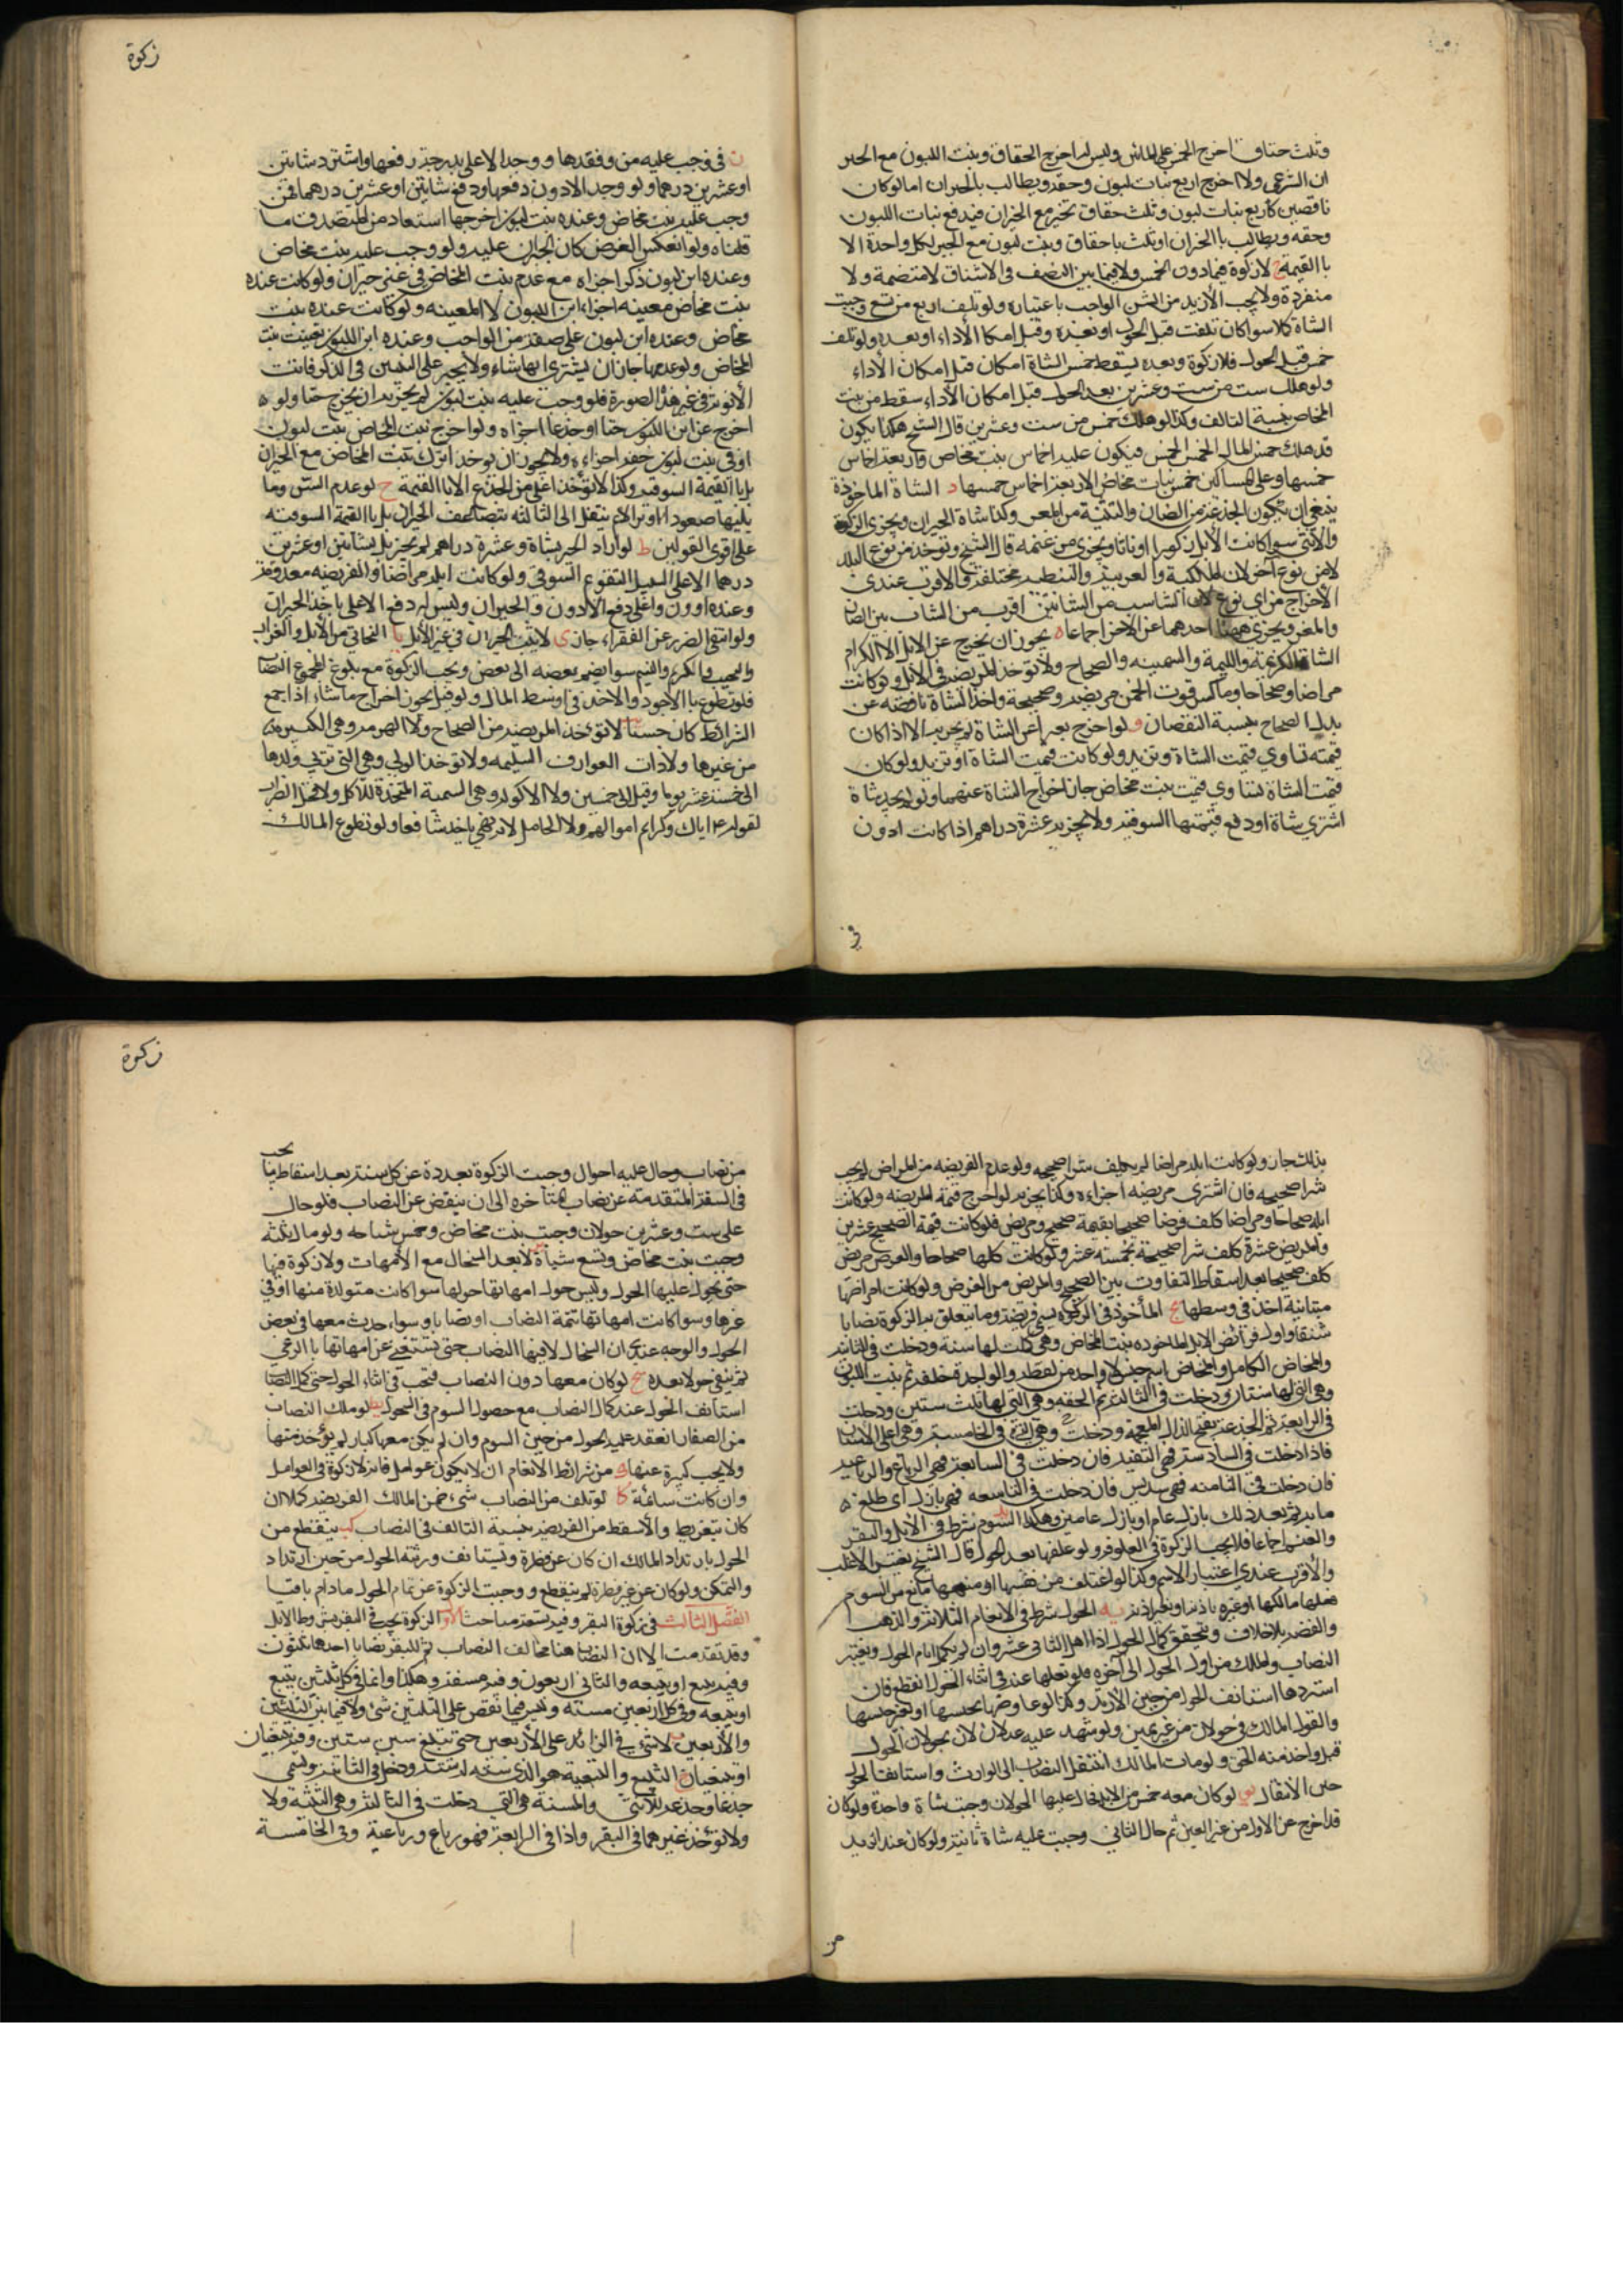 وثلث حقاق اخرج الخمس على المائتين وليس له اخراج الحقاق وبنت اللبون مع الجبر
ان الشرعى ولا اخرج اربع بنات لبون وحقه ويطالب بالجبران اما لو كان
ناقصين كاربع بنات لبون وثلث حقاق تخير مع الجبران فيدفع بنات اللبون
وحقه ويطالب باالجبران او ثلث باحقاق وبنت لبون مع الجبر لكل واحدة الا
باالقيمة ج لا زكوة فيما دون الخمس ولا فيما بين النصف فى الاشناق لا منضمة ولا
منفردة ولا يجب الأزيد من السن الواجب باعتباره ولو تلف اربع من تسع وجبت
الشاة كملا سوا كان تلفت قبل الحول او بعده وقبل امكا الأداء او بعده ولو تلف
خمس قبل الحول فلا زكوة وبعده يسقط خمس الشاة امكان قبل امكان الأداء
ولو هلك ست من ست وعشرين بعد الحول قبل امكان الأداء سقط من بنت
المخاض بنسبة التالف وكذا لو هلك خمس من ست وعشرين قال الشيخ هكذا يكون
قد هلك خمس المال الخمس الخمس فيكون عليه اخماس بنت مخاض واربعة اخماس
خمسها وعلى المساكين خمس بنات مخاض الا ربعة اخماس خمسها د الشاة الماخوذة
ينبغى ان تكون الجذعة من الضان والثنية من المعز وكذا شاة الجبران ويجزى الذكر
والأنثى سوا كانت الأبل ذكورا او اناثا ويجزى من غنمه قال الشيخ وتوخذ من نوع البلد
لا من نوع آخر لان المكية والعربية والنبطية مختلفة والاقرب عندى
الأخراج من اى نوع لان الشاسب من الشانين اقرب من المشاب بين الضان
والمعز ويجزى هنا احدهما عن الاخر اجماعا ه يجوز ان يخرج عن الابل الا الكرام
الشاة الكريمة واللئيمة والسمينه والصحاح ولا توخذ المريضة فى الأبل ولو كانت
مراضا وصحاحا وما كس قومت الخمس مريضه وصحيحة واخذ الشاة ناقصه عن
بدل الصحاح بنسبة النقصان و لو اخرج بعيرا عن الشاة لم يجز الا اذا كان
قيمته تساوي قيمت الشاة وتزيد ولو كانت قيمت الشاة او تزيد ولو كان
قيمت الشاة تساوى قيمت بنت مخاض جاز اخراج الشاة عنهما ولو لم يجد شاة
اشترى شاة او دفع قيمتها السوقيه ولا يجزيه عشرة دراهم اذا كانت ادون
فى
زكوة
ز فى وجب عليه من وفقدها ووجد الاعلى بدرجة دفعها واسترد شاتين
او عشرين درهما ولو وجد الادون دفعها ودفع شاتين او عشرين درهما فمن
وجب عليه بنت مخاض وعنده بنت لبون اخرجها استعاد من المتصدق ما
قلناه ولو انعكس الفرض كان الجبران عليه ولو وجب عليه بنت مخاض
وعنده ابن لبون ذكر اجزاه مع عدم بنت المخاض فى عنى جبران ولو كانت عنده
بنت مخاض معيبة اجزاء ابن اللبون لا المعيبه ولو كانت عنده بنت
مخاض وعنده ابن لبون على صفة من الواجب وعنده ابن اللبون تعينت بنت
المخاض ولو عدمهما جاز ان يشترى ايهما شاء ولا يجبر على الثمين فى الذكر فاتت
الأنوثة فى غير هذه الصورة فلو وجب عليه بنت لبون لم يجز بد ان يخرج حقا ولو ه
اخرج عن ابن اللبون حقا او جذعا اجزاه ولو اخرج بنت المخاض بنت لبون
او فى بنت لبون حقه اجزاء ولا يجوز ان يوخذ ابزك بنت المخاض مع الجبران
بل باالقيمة السوقيه وكذا لا توخذ اعلى من الجذع الا باالقيمة ح لو عدم السن وما
يليها صعودا او نزولا لم ينتقل الى الثالثه بتضاعف الجبران بل باالقيمة السوقيه
على اقوى القولين ط لو اراد الجبر بشاة وعشرة دراهم لم يجز بل بشاتين او عشرين
درهما الاعلى السبيل التقوع السوقى ولو كانت ابله مراضا والفريضه معدومة
وعنده اوون واعلى دفع الأدون والجبران وليس له دفع الاعلى باخذ الجبران
ولو انتفى الضرر عن الفقراء جاز ى لا يثبت الجبران فى غير الأبل يا البخاتى من الأبل والعراب
والنجيب والكريم واللئيم سوا يضم بعضه الى بعض ويجب الزكوة مع بلوغ المجموع النصاب
فلو تطوع باالأجود والاخذ فى اوسط المال ولو قيل يجوز اخراج ما شاء اذا جمع
الشرائط كان حسنا يب لا توخذ المريضه من الصحاح ولا الهرمه وهى الكبيره
من غيرها ولا ذات العوارف السليمه ولا توخذ الربى وهى التى تربي ولدها
الى خمسة عشر يوما وقيل الى خمسين ولا الاكوله وهى السمينة المتخذة للاكل ولا فحل الضراب
لقوله ع اياك وكرايم اموالهم ولا الحامل لانه نهى ياخذ شافعا ولو تطوع المالك
بذلك جاز ولو كانت ابله مراضا لم يكلف شرا صحيحه ولو عدم الفريضه من المراض لم يجب
شرا صحيحه فان اشترى مريضه اجزاءه وكذا يجزيه لو اخرج قيمة المريضه ولو كانت
ابله صحاحا ومراضا كلف فرضا صحيحا بقيمة صحيح ومريض فلو كانت قيمة الصحيح عشرين
والمريض عشرة كلف شرا صحيحه بخمسة عشر ولو كانت كلها صحاحا والفرض مريض
كلف صحيحا بعد اسقاط التفاوت بين الصحيح والمريض من الفرض ولو كانت امراضها
متباينة اخذ فى وسطها يج المأخوذ فى الزكوة يسمى فريضة وما يتعلق به الزكوة نصابا
شنقا واول فرائض الابل الماخوذه بنت المخاض وهى كملت لها سنة ودخلت فى الثانية
والمخاض الكامل والمخاض اسم جنس لا واحد من لفظه والواحدة خلفه ثم بنت اللبون
وهى التى لها سنتان ودخلت فى الثالثة ثم الحقه وهى التى لها ثلث سنين ودخلت
فى الرابعة ثم الجذعة بفتح الذال المعجمة ودخلت وهى التى فى الخامسة وهى اعلى الاسنان
فاذا دخلت فى السادسة فهى الثنية فان دخلت فى السابعة فهى الرباع والرباعيه
فان دخلت فى الثامنه فهى سديس فان دخلت فى التاسعه فهى بازل اى طلع نه
ما بدثم بعد ذلك بازل عام او بازل عامين وهكذا يد السوم شرط فى الأبل والبقر
والغنم اجماعا فلا يجب الزكوة فى العلوفه ولو علفها بعد الحول قال الشيخ يعتبر الاغلب
والأقرب عندى اعتبار الاسم وكذا لو اعتلف من نفسها او منعها مانع من السوم
فعلها مالكها او غيره باذنه او بغير اذنه يه الحول شرط فى الانعام الثلاثة والذهب
والفضه بلا خلاف ويتحقق كمال الحول اذا اهل الثانى عشر وان لم يكمل ايام الحول ويعتبر
النصاب والملك من اول الحول الى آخره فلو نقلها عنه فى اثناء الحول انقطع فان
استردها استانف الحول من حين الأزيد وكذا لو عاوضها بجنسها او بغير جنسها
والقول المالك فى حولان من غير يمين ولو شهد عليه عدلان لان بحولان الحول
قبل واخذ منه الحق ولو مات المالك انتقل النصاب الى الوارث واستانف الحول
حين الانتقال يو لو كان معه خمس من الابل فحال عليها الحولان وجبت شاة واحدة ولو كان
قد اخرج عن الاول من غير العين ثم حال الثانى وجبت عليه شاة ثانية ولو كان عنده ازيد
من
زكوة
يجب
من نصاب وحال عليه احوال وجبت الزكوة بعددة عن كل سنة بعد اسقاط ما
فى السنة المتقدمة عن نصاب المتاخره الى ان ينقص عن النصاب فلو حال
على ست وعشرين حولان وجبت بنت مخاض وخمس شياه ولو مال ثلثه
وجبت بنت مخاض وتسع شياة يز لا يعد السخال مع الأمهات ولا زكوة فيها
حتى يحول عليها الحول وليس حول امهاتها حولها سوا كانت متولدة منها او فى
غيرها وسوا كانت امهاتها تتمة النصاب او نصابا وسواء حدث معها فى بعض
الحول والوجه عندى ان السخال لا فيها النصاب حتى تستغنى عن امهاتها باالرعى
ثم يبقى حولا بعده يح لو كان معها دون النصاب فتجب فى اثناء الحول حتى كمل النصا
استانف الحول عند كمال النصاب مع حصول السوم فى الحول يط لو ملك النصاب
من الصغار انعقد عليه الحول من حين السوم وان لم يكن معها كبار لم يؤخذ منها
ولا يجب كبيرة عنها ك من شرائط الانعام ان لا يكون عوامل فانه لا زكوة فى العوامل
وان كانت سائمة كا لو تلف من النصاب شىء ضمن المالك الفريضه كملا ان
كان بتفريط والأ سقط من الفريضه بنسبة التالف فى النصاب كب ينقطع من
الحول بارتداد المالك ان كان عن فطرة ويستانف ورثته الحول من حين ارتداد
والتمكن ولو كان عن غير فطرة لم ينقطع ووجبت الزكوة عن تمام الحول مادام باقيا
الفصل الثالث فى زكوة البقر وفيه تسعة مباحث الأول الزكوة يجب فى البقر بشروط الابل
وقد تقدمت الا ان النصاب هنا مخالف النصاب ثم للبقر نصابا احدها ثلثون
وفيه تبيع او تبيعه والثانى اربعون وفيه مسنة وهكذا دائما فى كل ثلثين تبيع
او تبيعه وفى كل اربعين مسنه وليس فيما نقص على الثلثين شئ ولا فيما بين الثلثين
والأربعين ب لا شئ فى الزائد على الأربعين حتى تبلغ سين ستين وفيه تبيعان
او تبيعتان ج التبيع والتبيعة هو الذى سنته له سنة ودخل فى الثانية ويسمى
جذعا وجذعة للأنثى والمسنة هى التى دخلت فى الثالثة وهى الثنية ولا
ولا توخذ غيرهما فى البقر واذا فى الرابعة فهو رباع ورباعية وفى الخامسة